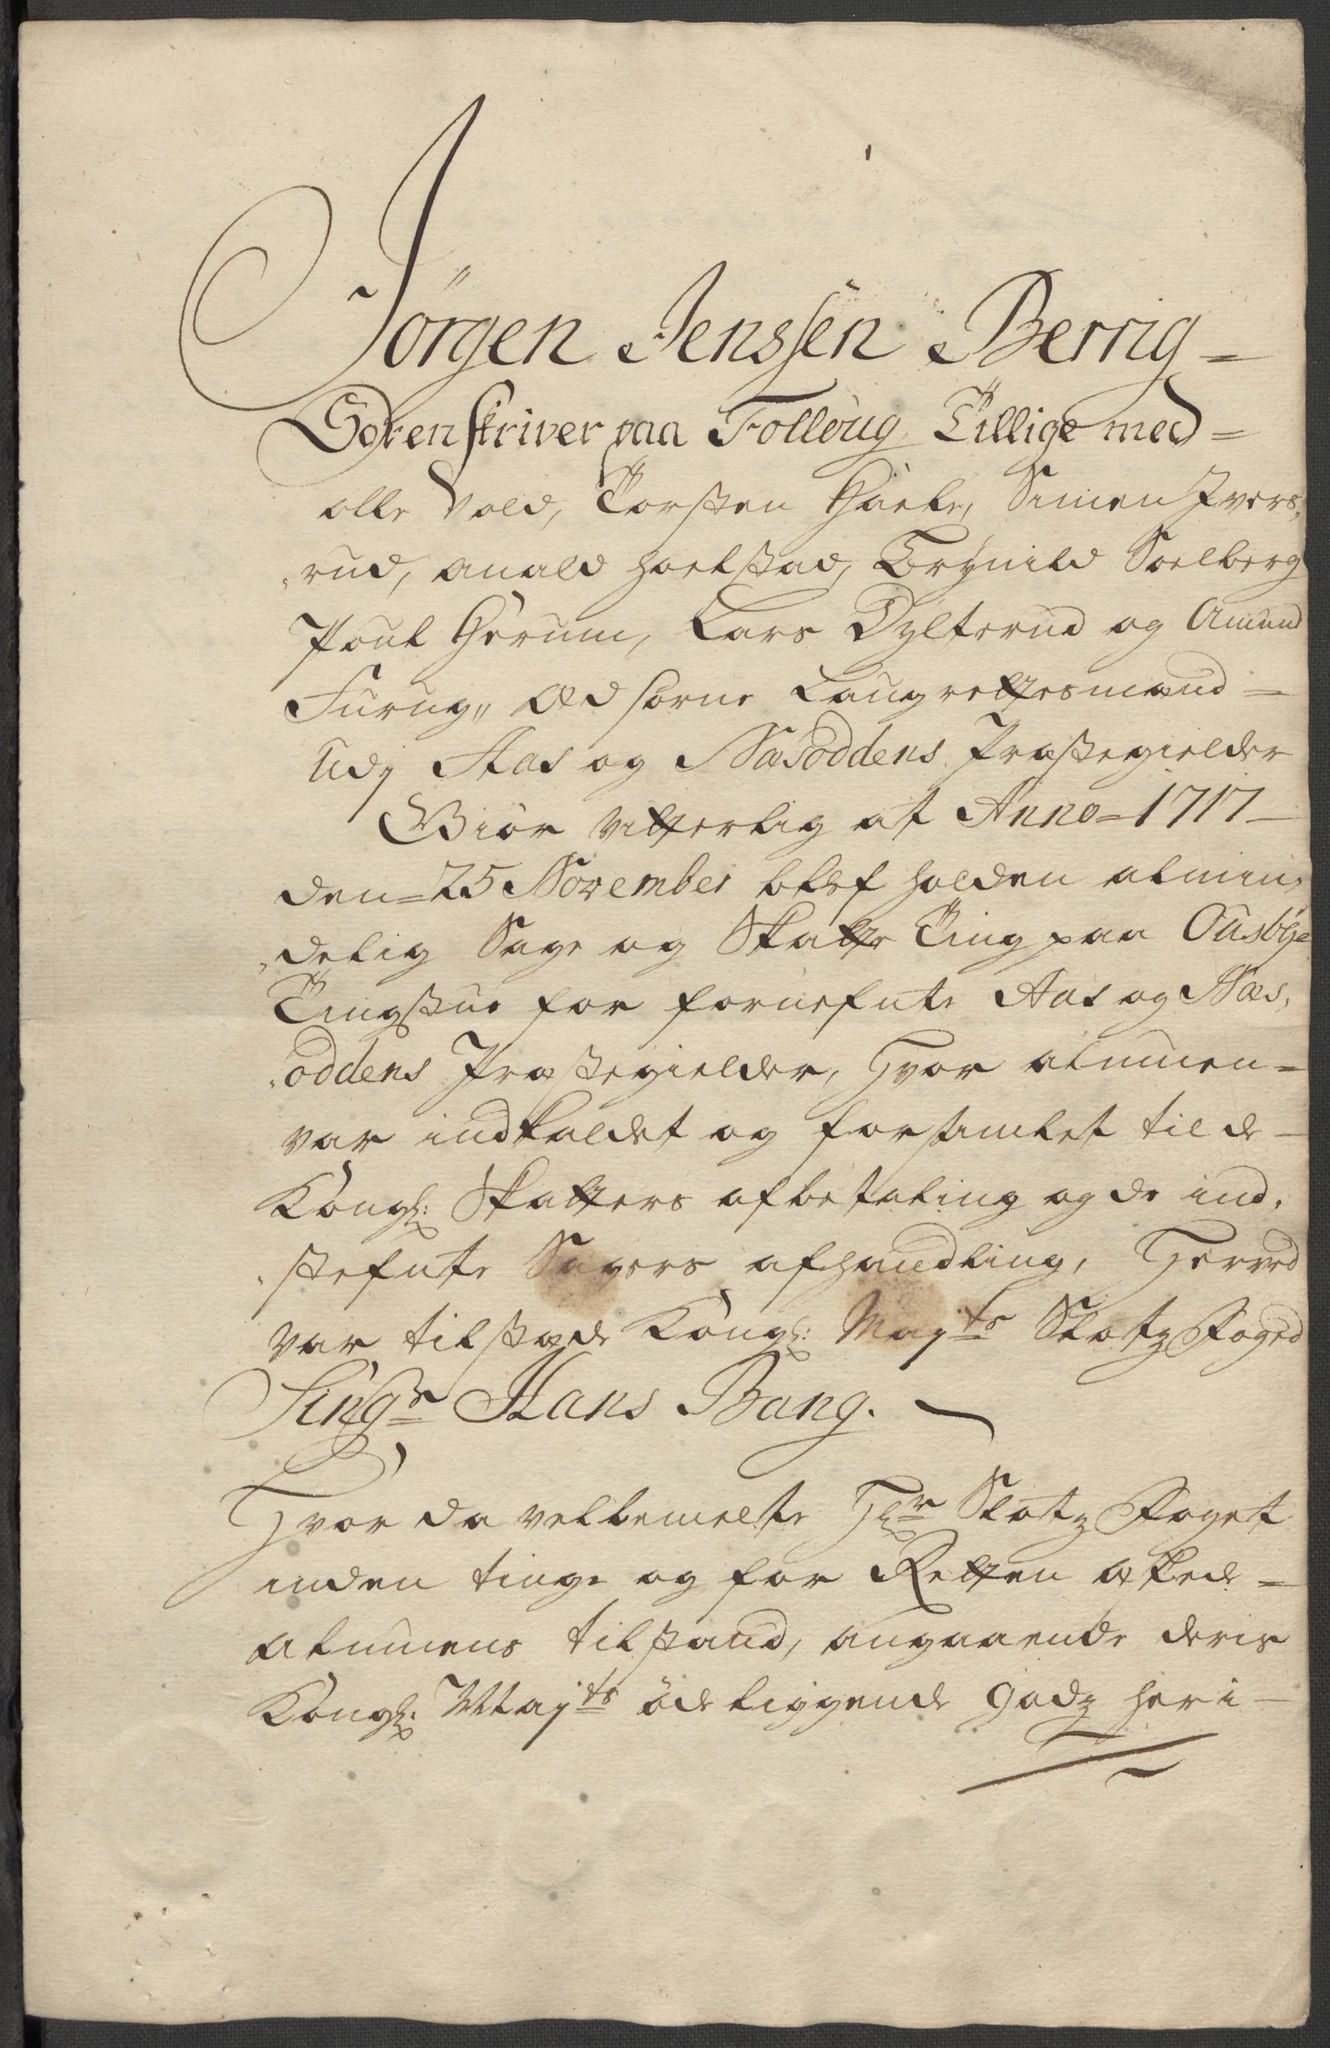 Jörgen Jenssen Berrig =
Sorenskriver paa Follöug Tillige med =
olle Vold, Torsten Giele, Simen Ivers,
,rud, Anald Holstad, Brynild Soelberg
Poul Gierum, Lars Dylterud og Amund
Furug,, Ed sorne Laugrettesmænd =
Udj Aas og Næsoddens Præstegielder
Giör vitterlig at Anno = 1717 –
den = 25 November blef holden almin,
,delig Sage og Skatte Ting paa Ousbye
Tingstue for fornefnte Aas og Næs,
,oddens Præstegielder, Hvor almuen =
var indkaldet og forsamlet til de –
Kongl: Skatters afbetaling og de ind,
,stefnte Sagers afhandling, Herved
var tilstæde Kongl: Mayts Slotz Foged
Singr Hans Bang.
Hvor da velbemelte Hr Slotz Foget
inden tinge og for Retten æskede =
almuens tilstand, angaaende deris
Kongl: Mayts öde liggende godz her i –